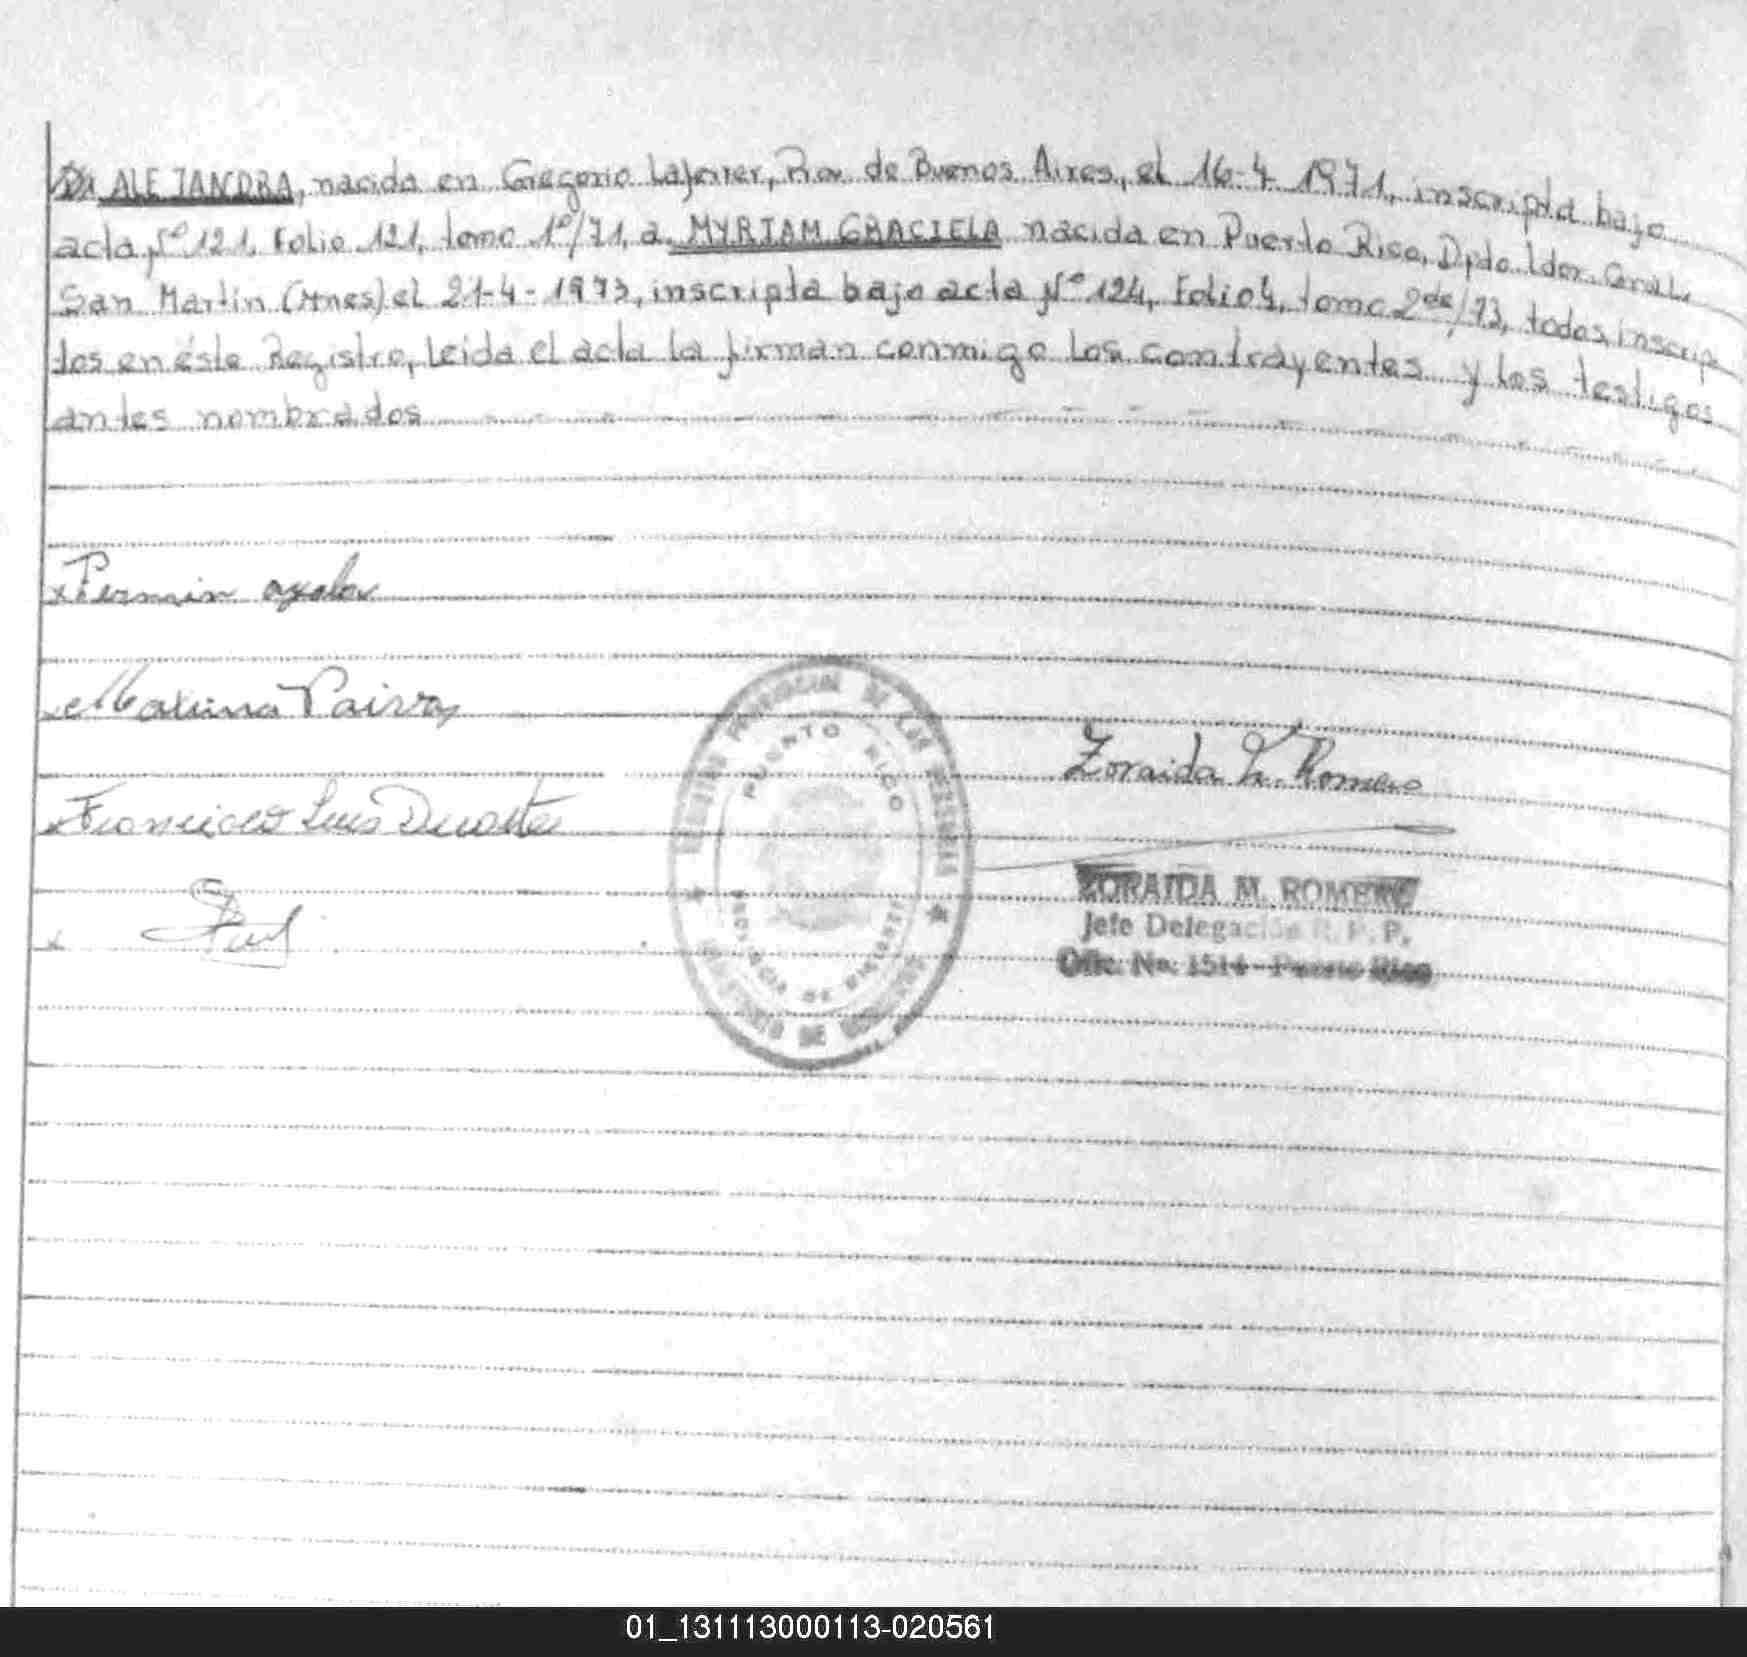 ALEJANDRA, nacida en Gregorio Laferrer, Prov. de Buenos Aires, el 16-4-1971, inscripta bajo
acta Nº 121, Folio 121, tomo 1º/71, a MYRIAM GRACIELA nacida en Puerto Rico, Dpdo. Ldor. Gral.
San Martin (Mnes) el 21-4-1973, inscripta bajo acta Nº 124, Folio 4, tomo 2do/73, todos inscrip
tos en éste Registro, leida el acta la firman conmigo los contrayentes y los testigos
antes nombrados
x Fermin ayala
x Paiva
x Francisco Luis Duarte
x
REGISTRO PROVINCIAL DE LAS PERSONAS
PUERTO RICO
PROVINCIA DE MISIONES
Zoraida M. Romero
ZORAIDA M. ROMERO
Jefe Delegación R. P. P.
Ofic. No. 1514 - Puerto Rico
01_131113000113-020561